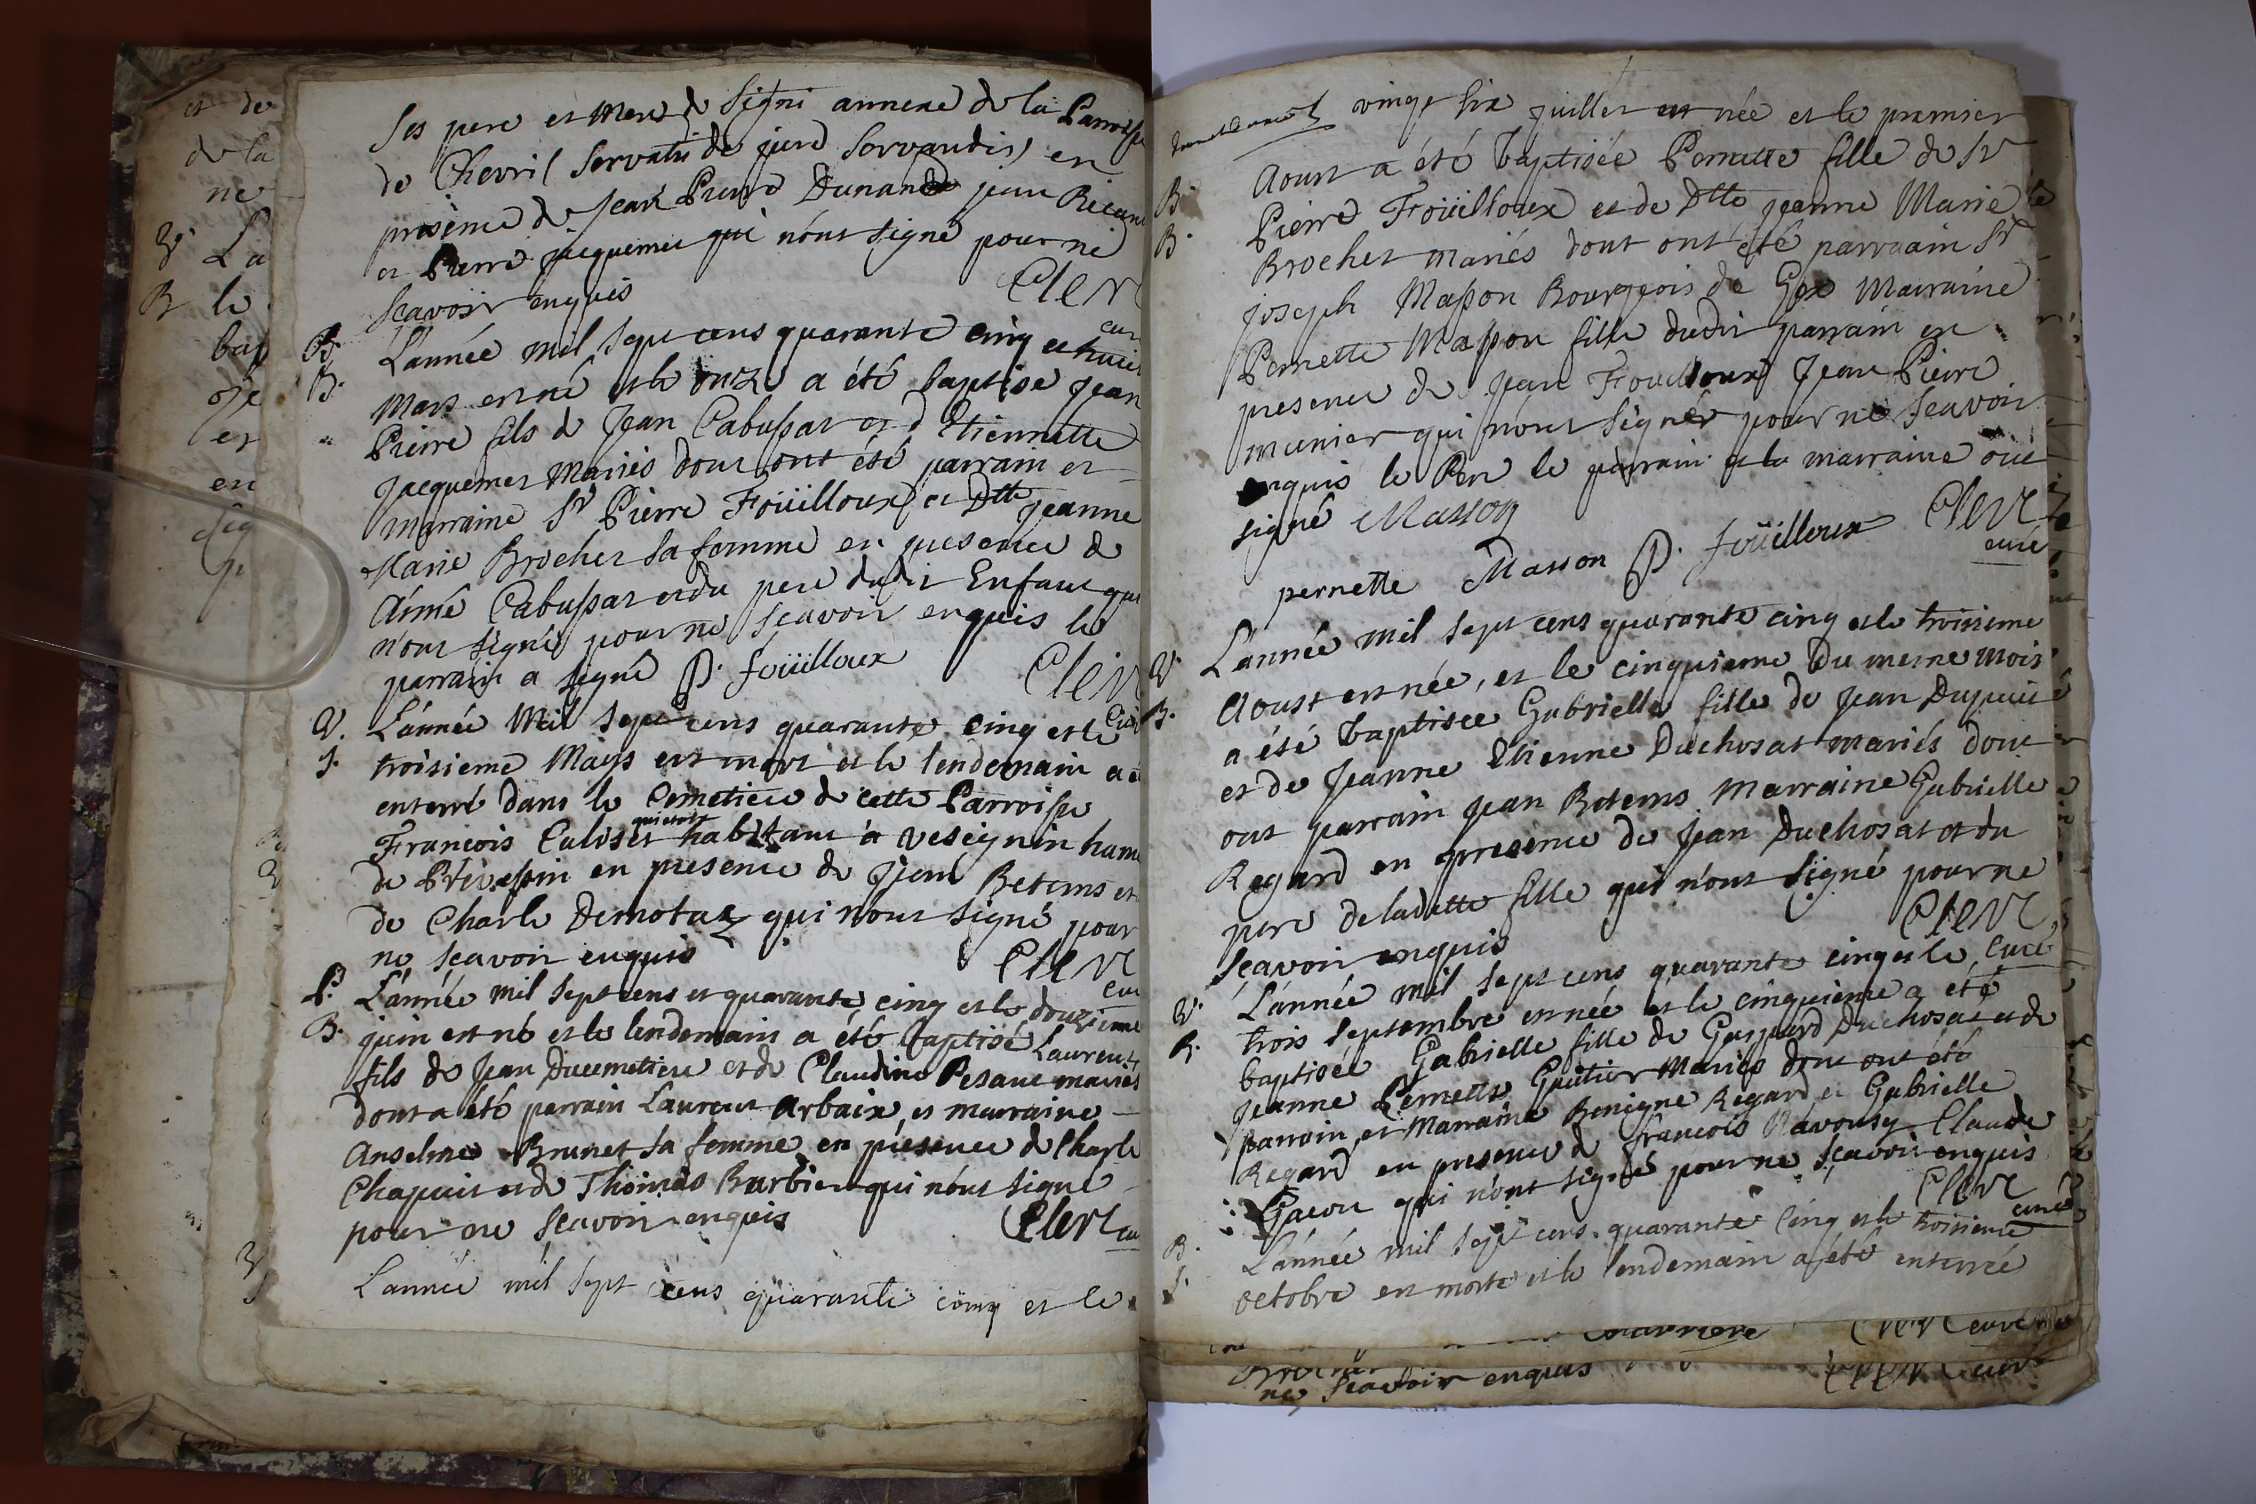 et de
de la
ne
V. La
B le
bap
oze
et
en
sig
p
ses pere et mere de Signi annexe de la Parroisse
de Chevri (servatis de jure servandis) en
presence de Jean Pierre Dunand jean
et Pierre jacquemet qui n'ont signé pour ne
scavoir enquis Clerc
curé
P. L'année mil sept cens quarante cinq et huit
B. Mars est né et le onze a été baptisé jean
Pierre fils de Jean Cabussat et d'Etiennette
jacquemet Mariés dont ont été parrain et
marraine Sr Pierre Foüilloux et Dlle jeanne
Marie Brochet sa femme en presence de
Aimé Cabussat et du pere dudit Enfant qui
n'ont signé pour ne scavoir enquis le
parrain a signé P. foüilloux Clerc
V. L'année Mil sept cens quarante cinq et le
S. troisieme Mays est mort et le lendemain a é
enterré dans le Cimetiere de cette Parroisse
qui etoit
Francois habitant à Vesegnin ham
de Prevessin en presence de Jean Betems et
de Charle Demotaz qui n'ont signé pour
ne scavoir enquis Clerc
cur
P. L'année mil sept cens et quarante cinq et le douzieme
B. juin est né et le lendemain a été baptisé Laurent
fils de Jean Ducimetiere et de Claudine Pesant mariés
dont a été parrain Laurent Arbaix et marraine
Anselme Brunet sa femme en présence de Charle
Chapuis et de Thomas Barbier qui n'ont signé
pour ne scavoir enquis Clerc cu
L'année mil sept cens quarante cinq et le
vingt six juillet est née et le premier
B. Aoust a été baptisée Pernette fille de Sr
B. Pierre Foüilloux et de Dlle jeanne Marie
Brochet mariés dont ont été parraain Sr
joseph Masson Bourgeois de Gex Marraine
Pernette Masson fille dudit parrain en
presence de Jean Fouilloux Jean Pierre
munier qui n'ont signér pour ne scavoir
enquis le Pere le parrain et la marraine ont
signé Masson
pernette Masson P. foüilloux Clerc
curé
V. L'année mil sept cens quarante cinq et le troisieme
B. Aoust est née, et le cinquieme du meme mois
a été baptisée Gabrielle fille de Jean Dupuis
et de Jeanne Etienne Duchosat mariés dont
ont parrain Jean Betems Marraine Gabrielle
Regard en presence de Jean Duchosat et du
pere de ladette fille qui n'ont signé pour ne
scavoir enquis Clerc
curé
V. L'année mil sept cens quarante cinq et le
B. trois Septembre est née et le cinquieme a été
baptisée Gabrielle fille de Gaspard Duchosat et de
jeanne Pernette Gautier Mariés dont ont été
parrain et Marraine Benigne Regard et Gabrielle
Regard en presence de francois Claude
Gacon qui n'ont signé pour ne scavoir enquis
Clerc
curé
B. L'année mil sept cens quarante Cinq et le troisieme
S. octobre est morte et le lendemain a été enterrée
Clerc curé
Brochet
ne scavoir enquis Clerc curé